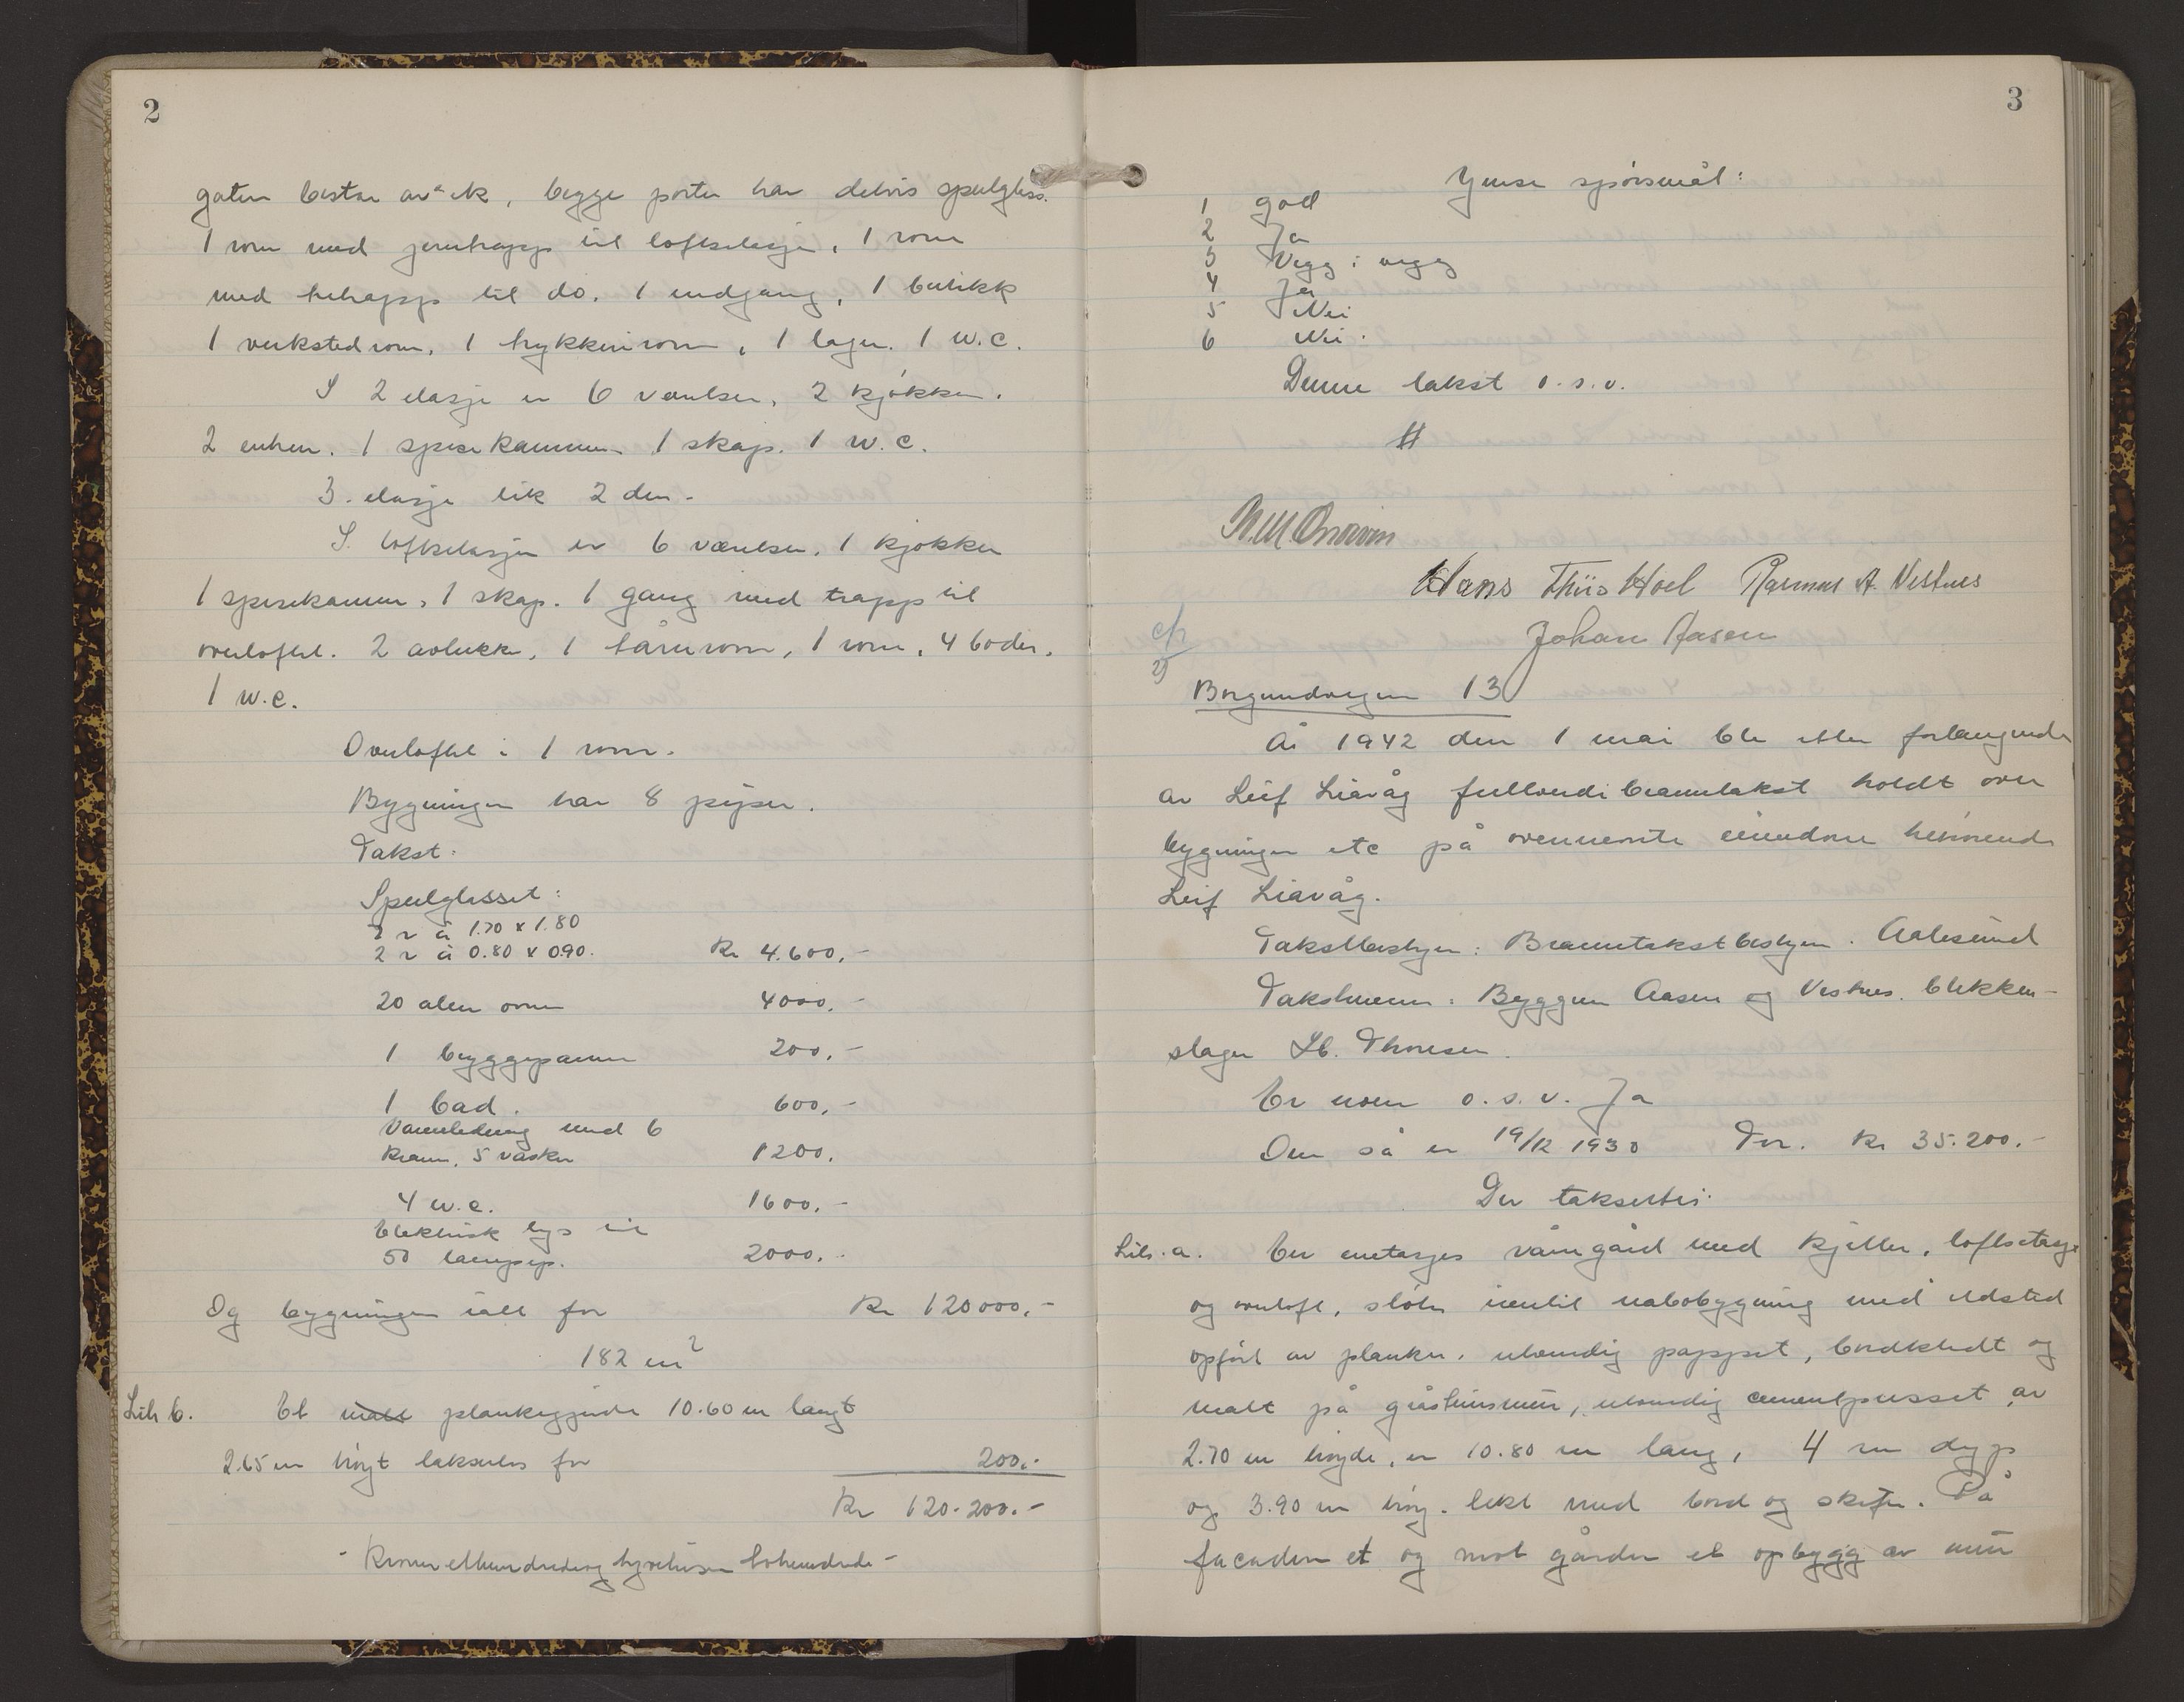 2
gaten består av ek, begge porter har delvis speilglass.
1 rom med jerntrapp til loftsetasje, 1 rom
med tretrapp til do. 1 indgang, 1 butikk
1 verkstedrom, 1 trykkerirom, 1 lager. 1 w.c.
I 2 etasje er 6 værelser, 2 kjøkken.
2 entreer. 1 spisekammer 1 skap. 1 w.c.
3. etasje lik 2 den.
I loftsetasjen er 6 værelser, 1 kjøkken
1 spisekammer, 1 skap. 1 gang med trapp til
overloftet. 2 avlukker, 1 tårnrom, 1 rom, 4 boder,
1 w.c.
Overloftet i 1 rom.
Bygningen har 8 piper.
Takst:
Speilglasset:
2 r à 1.70 x 1.80
2 r à 0.80 x 0.90. Kr 4.600.-
20 alen ovn 4000.-
1 bryggepanne 200.-
1 bad. 600.-
Vannledning med 6
kraner, 5 vasker 1200.
4 w.c. 1600.-
Elektrisk lys til
50 lampep. 2000.-
Og bygningen ialt for Kr 120000.-
182 m2
Litr b. Et malt plankegjerde 10.60 m langt
2.65 m høigt takseres for 200.-
Kr 120.200.-
- Kroner etthundredeogtyvetusen tohundrede -
3
Ymse spørsmål:
1 god
2 Ja
3 Vegg i vegg
4 Ja
5 Nei
6 Nei.
Denne takst o.s.v.
#
Hans Thiis Hoel Rasmus A. Vestnes
Johan Aasen
2)
Borgundvegen 13
År 1942 den 1 mai ble etter forlangende
av Leif Liavåg fullvendi branntakst holdt over
bygninger etc på ovennevnte eiendom tilhørende
Leif Liavåg.
Takstbestyrer: Branntakstbestyrer. Aalesund
Takstmenn: Byggm Aasen og Vestnes. blikken-
slager Th. Thoresen.
Er noen o.s.v. Ja
Om så er 19/12 1930 For. Kr 35.200.-
Der takseres:
Litr. a. En enetasjes våningård med kjeller, loftsetasje
og overloft, støter inntil nabobygning med ildsted
opført av planker, utvendig pappet, bordkledt og
malt på gråstensmur, utvendig cementpusset, av
2.70 m høyde, er 10.80 m lang, 4 m dyp
og 3.90 m høy. tekt med bord og skifer. På
facaden et og mot gården et opbygg av mur